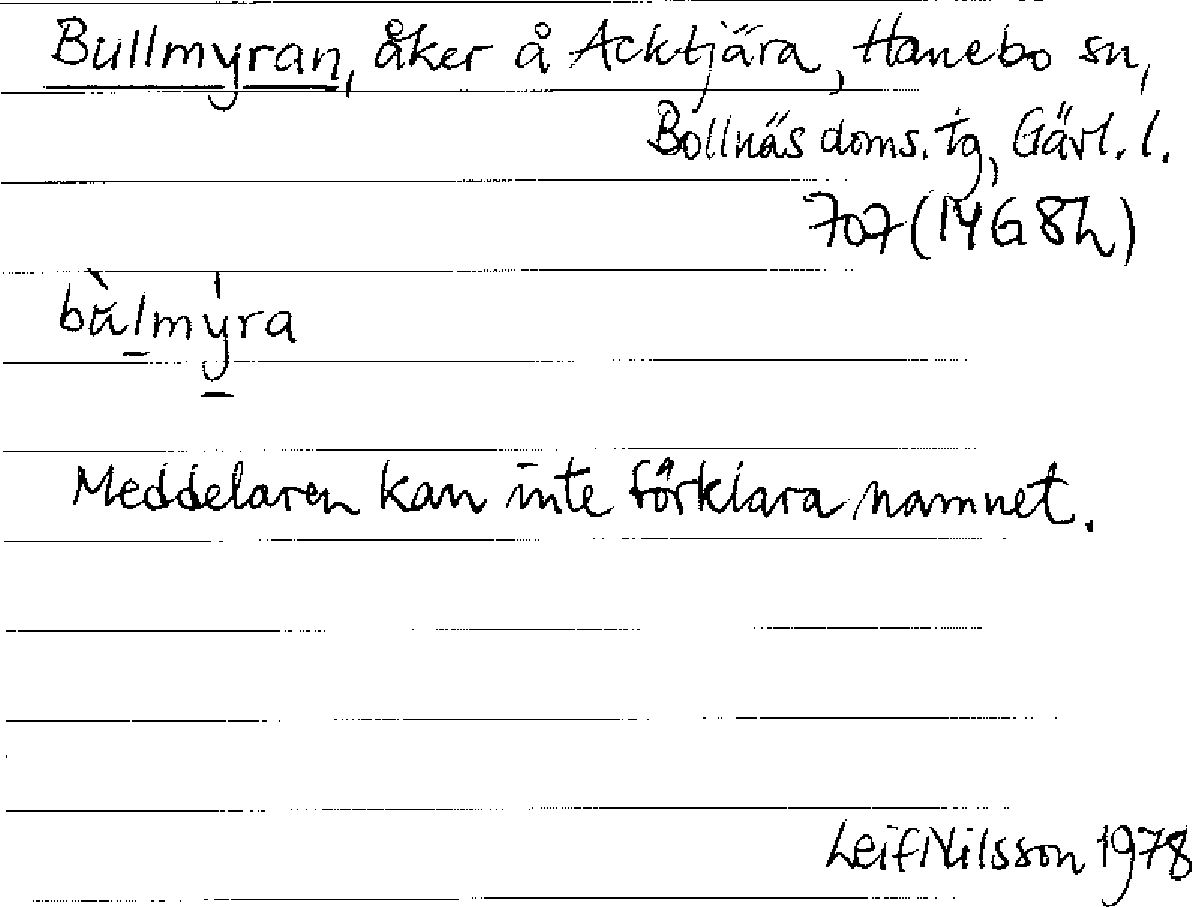 Bullmyran, åker å Acktjära, Hanebo sn,
Bollnäs doms. tg, Gävl. l.
707 (14G8h)
bàlmýra
Meddelaren kan inte förklara namnet.
Leif Nilsson 1978